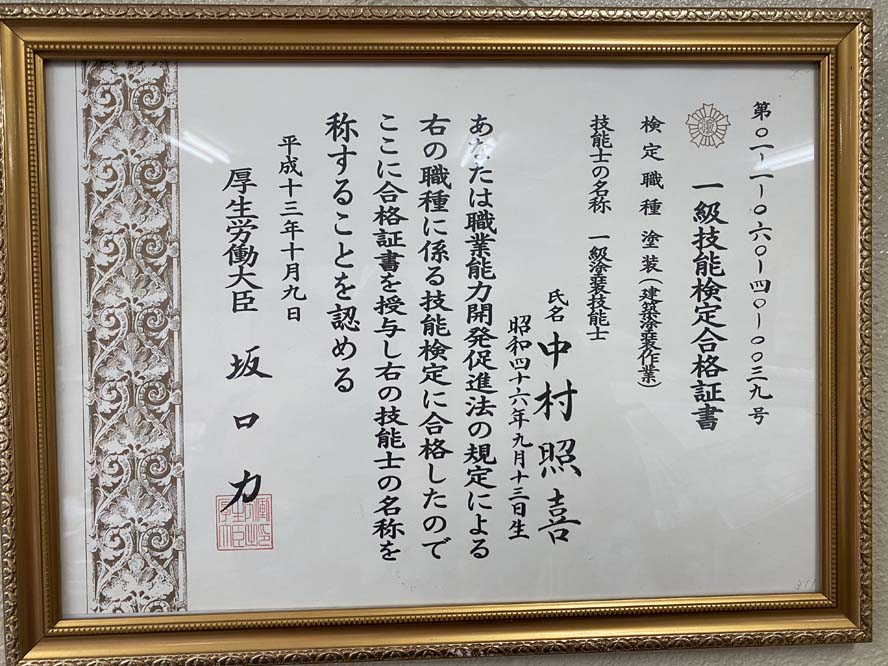 第〇一-一-〇六〇-四〇-〇〇三九号
一級技能検定合格証書
検定職種 塗装(建築塗装作業)
技能士の名称 一級塗装技能士
氏名 中村照喜
昭和四十六年九月十三日生
あなたは職業能力開発促進法の規定による
右の職種に係る技能検定に合格したので
ここに合格証書を授与し右の技能士の名称を
称することを認める
平成十三年十月九日
厚生労働大臣 坂口力